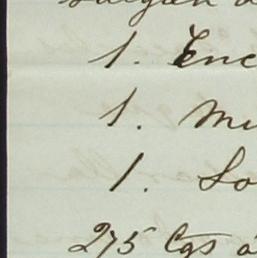 1. Enc
1. Mu
1. So
275 Cgs a